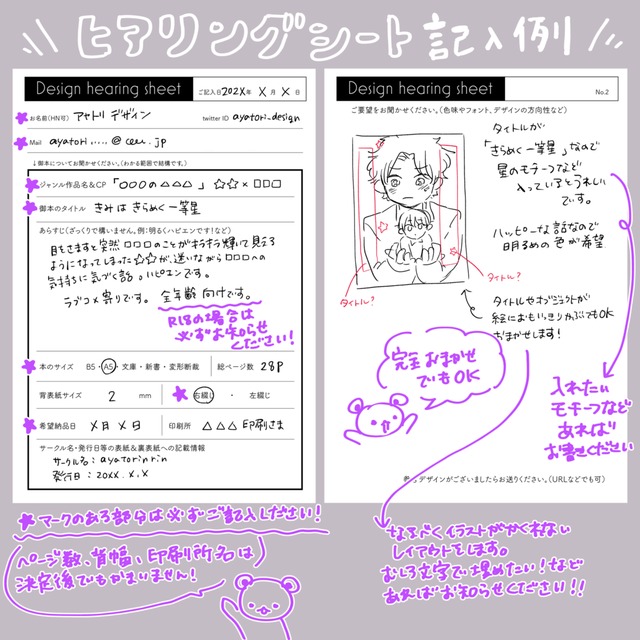 ヒアリングシート記入例
Design hearing sheet
ご記入日 202X年 X月 X日
★お名前(HN可) アヤトリ デザイン
twitter ID ayatori_design
★Mail ayatori.....@ceeu.jp
↓御本についてお聞かせください。(わかる範囲で結構です。)
★ジャンル作品名&CP 「○○○の△△△」 ☆☆×□□□
★御本のタイトル きみはきらめく一等星
あらすじ(ざっくりで構いません。例:明るくハピエンです!など)
目をさますと突然□□□のことがキラキラ輝いて見える
ようになってしまった☆☆が、迷いながら□□□への
気持ちに気づく話。ハピエンです。
ラブコメ寄りです。 全年齢向けです。
R18の場合は
必ずお知らせ
ください!
★本のサイズ B5・A5・文庫・新書・変形断裁 総ページ数 28P
背表紙サイズ 2 mm ★右綴じ・左綴じ
★希望納品日 X月X日 印刷所 △△△印刷さま
サークル名・発行日等の表紙&裏表紙への記載情報
サークル名:ayatorinrin
発行日:20XX.X.X
★マークのある部分は必ずご記入ください!
ページ数、背幅、印刷所名は
決定後でもかまいません!
Design hearing sheet
No.2
ご要望をお聞かせください。(色味やフォント、デザインの方向性など)
タイトルが
「きらめく一等星」なので
星のモチーフなど
入っているとうれしい
です。
ハッピーな話なので
明るめの色が希望
タイトル?
タイトル?
タイトルやオブジェクトが
絵におもいっきりかぶってもOK
おまかせします!
完全おまかせ
でもOK
入れたい
モチーフなど
あれば
お書きください
デザインがございましたらお送りください。(URLなどでも可)
なるべくイラストがかくれない
レイアウトをします。
むしろ文字で埋めたい!など
あればお知らせください!!